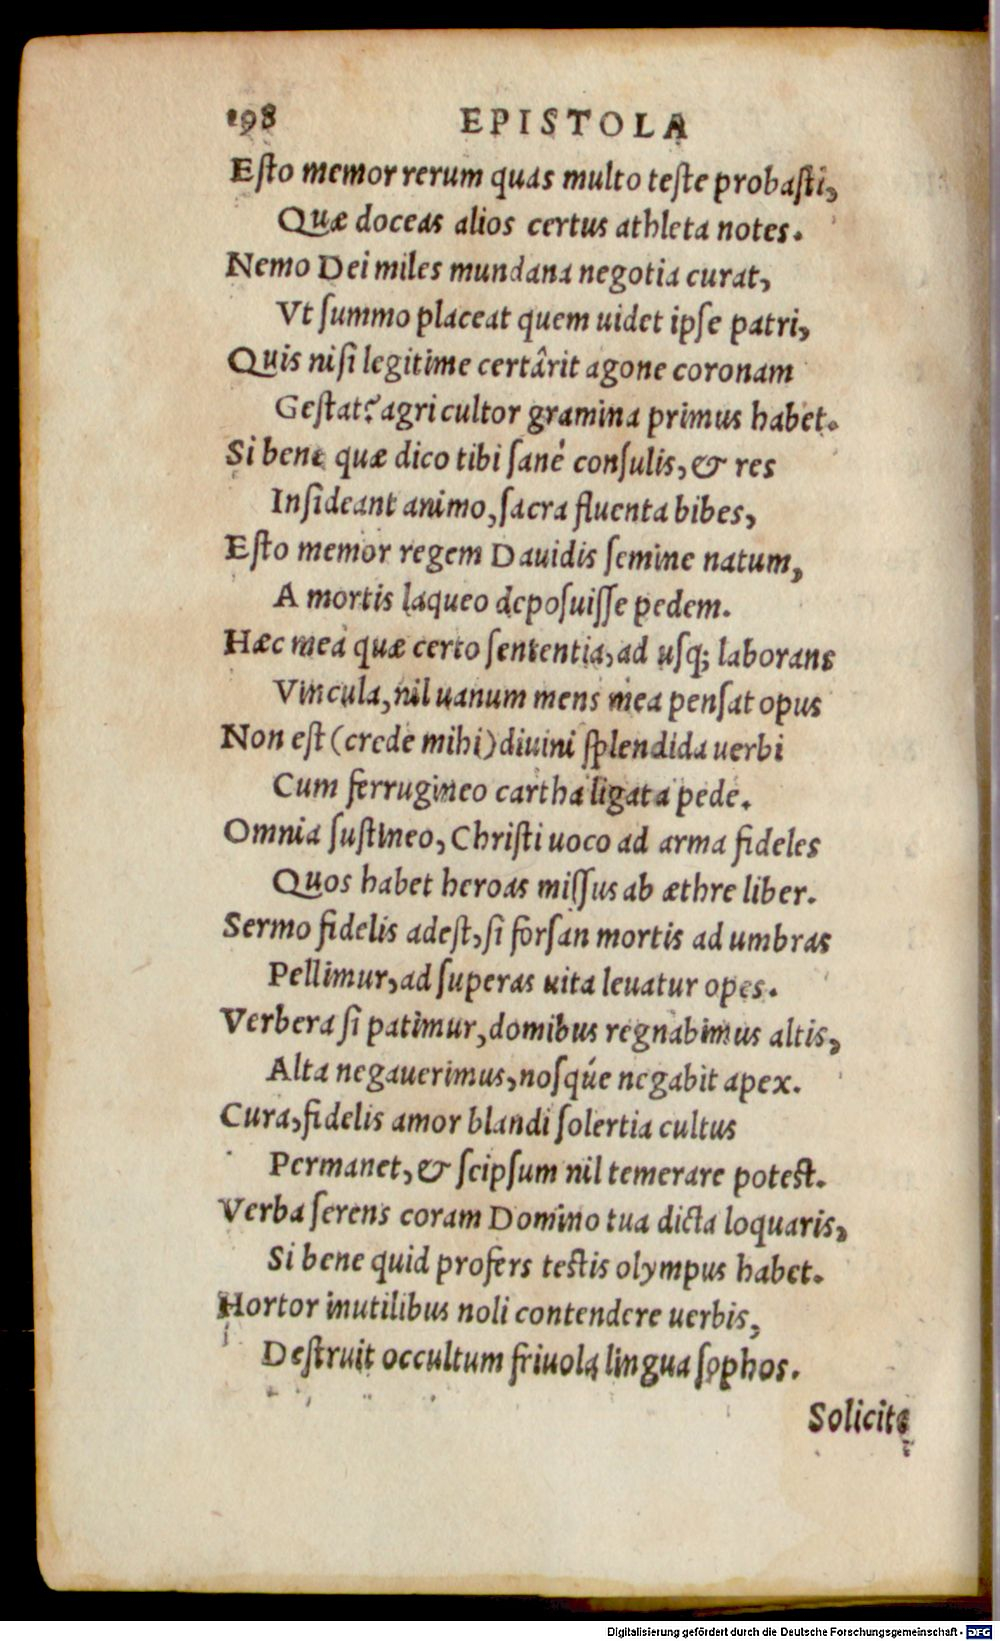 198 EPISTOLA
Esto memor rerum quas multo teste probasti,
Quæ doceas alios certus athleta notes.
Nemo Dei miles mundana negotia curat,
Vt summo placeat quem uidet ipse patri,
Quis nisi legitime certârit agone coronam
Gestat? agricultor gramina primus habet.
Si bene quæ dico tibi sanè consulis, & res
Insideant animo, sacra fluenta bibes,
Esto memor regem Dauidis semine natum,
A mortis laqueo deposuisse pedem.
Hæc mea quæ certo sententia, ad usq; laborans
Vincula, nil uanum mens mea pensat opus
Non est (crede mihi) diuini splendida uerbi
Cum ferrugineo cartha ligata pede.
Omnia sustineo, Christi uoco ad arma fideles
Quos habet heroas missus ab æthre liber.
Sermo fidelis adest, si forsan mortis ad umbras
Pellimur, ad superas uita leuatur opes.
Verbera si patimur, domibus regnabimus altis,
Alta negauerimus, nosqúe negabit apex.
Cura, fidelis amor blandi solertia cultus
Permanet, & seipsum nil temerare potest.
Verba serens coram Domino tua dicta loquaris,
Si bene quid profers testis olympus habet.
Hortor inutilibus noli contendere uerbis,
Destruit occultum friuola lingua sophos.
Solicite
Digitalisierung gefördert durch die Deutsche Forschungsgemeinschaft - DFG